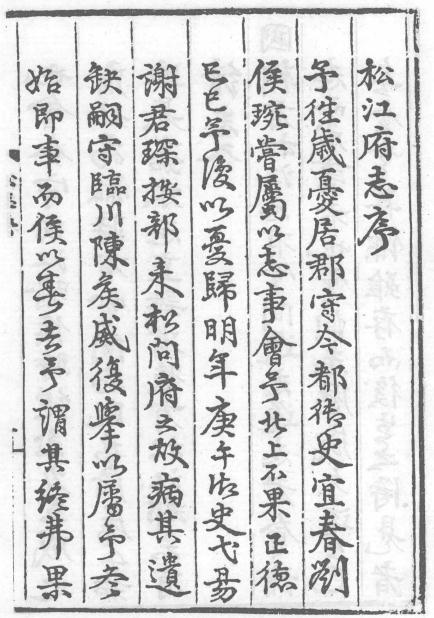 松江府志序
予往歲憂居郡守今都御史宜春劉
侯琬嘗屬以志事會予北上不果正德
己巳予復以憂歸明年庚午御史弋昜
謝君琛按部来松問府之故病其遺
缺嗣守臨川陳矦威復舉以屬予冬
始即事而侯以春去予謂其終弗果